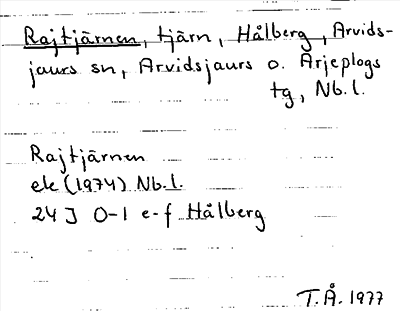 Rajtjärnen, tjärn, Hålberg, Arvids-
jaurs sn, Arvidsjaurs o. Arjeplogs
tg, Nb.l.
Rajtjärnen
ek (1974) Nb.l.
24 J 0-1 e-f Hålberg
T.Å. 1977